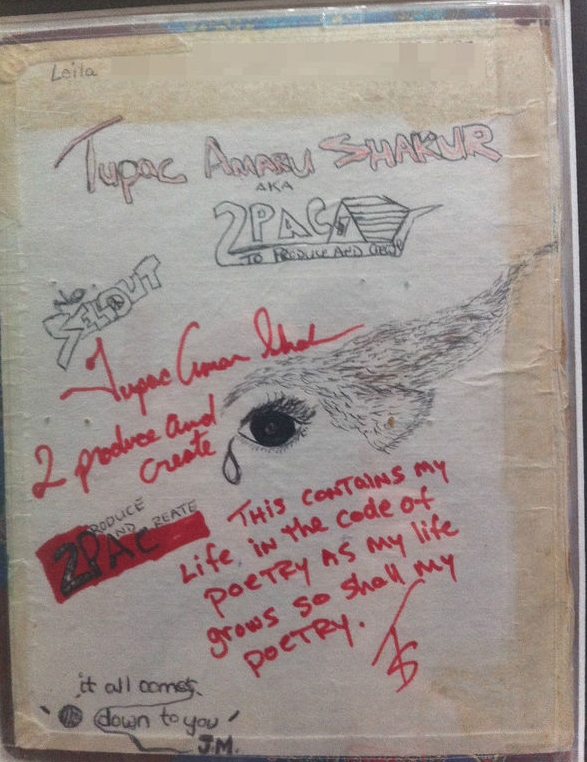 Leila
Tupac Amaru Shakur
AKA
2PAC
TO PRODUCE AND CREATE
NO
SELLOUT
Tupac Amaru Shakur
2 produce and
create
PRODUCE
AND CREATE
2PAC
THIS CONTAINS MY
Life, in the code of
POETRY AS my life
grows so shall my
POETRY.
TS
it all comes
down to you
J.M.